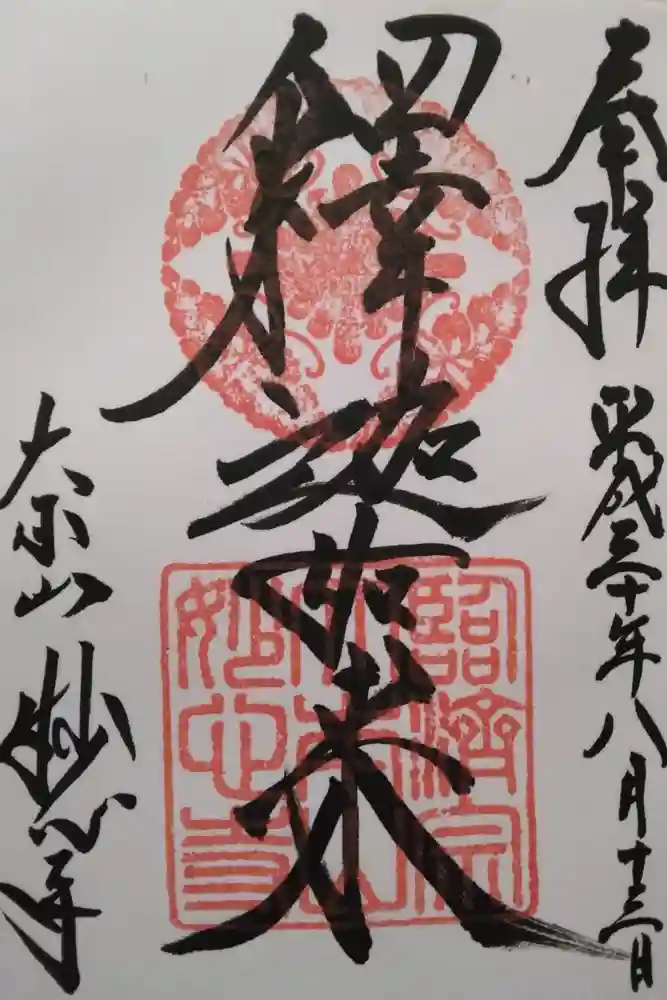 奉拝
平成三十年八月十三日
釋迦如来
大本山 妙心寺
臨濟宗
大本山
妙心寺